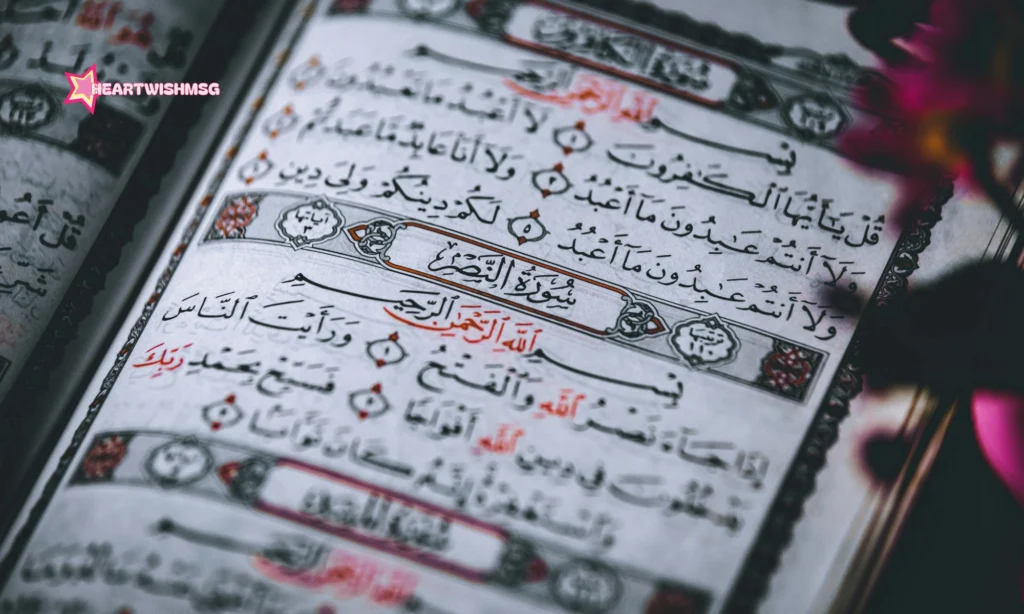 HEARTWISHMSG
سُورَةُ الكَافِرُونَ
بِسْمِ ٱللَّهِ ٱلرَّحْمَٰنِ ٱلرَّحِيمِ
قُلْ يَٰٓأَيُّهَا ٱلْكَٰفِرُونَ ١ لَآ أَعْبُدُ مَا تَعْبُدُونَ ٢
وَلَآ أَنتُمْ عَٰبِدُونَ مَآ أَعْبُدُ ٣ وَلَآ أَنَا۠ عَابِدٌ مَّا عَبَدتُّمْ ٤
وَلَآ أَنتُمْ عَٰبِدُونَ مَآ أَعْبُدُ ٥ لَكُمْ دِينُكُمْ وَلِىَ دِينِ ٦
ترتيبها ١١٠ سُورَةُ النَّصْرِ آياتها ٣
بِسْمِ ٱللَّهِ ٱلرَّحْمَٰنِ ٱلرَّحِيمِ
إِذَا جَآءَ نَصْرُ ٱللَّهِ وَٱلْفَتْحُ ١ وَرَأَيْتَ ٱلنَّاسَ
يَدْخُلُونَ فِى دِينِ ٱللَّهِ أَفْوَاجًا ٢ فَسَبِّحْ بِحَمْدِ رَبِّكَ
وَٱسْتَغْفِرْهُ إِنَّهُۥ كَانَ تَوَّابًۢا ٣